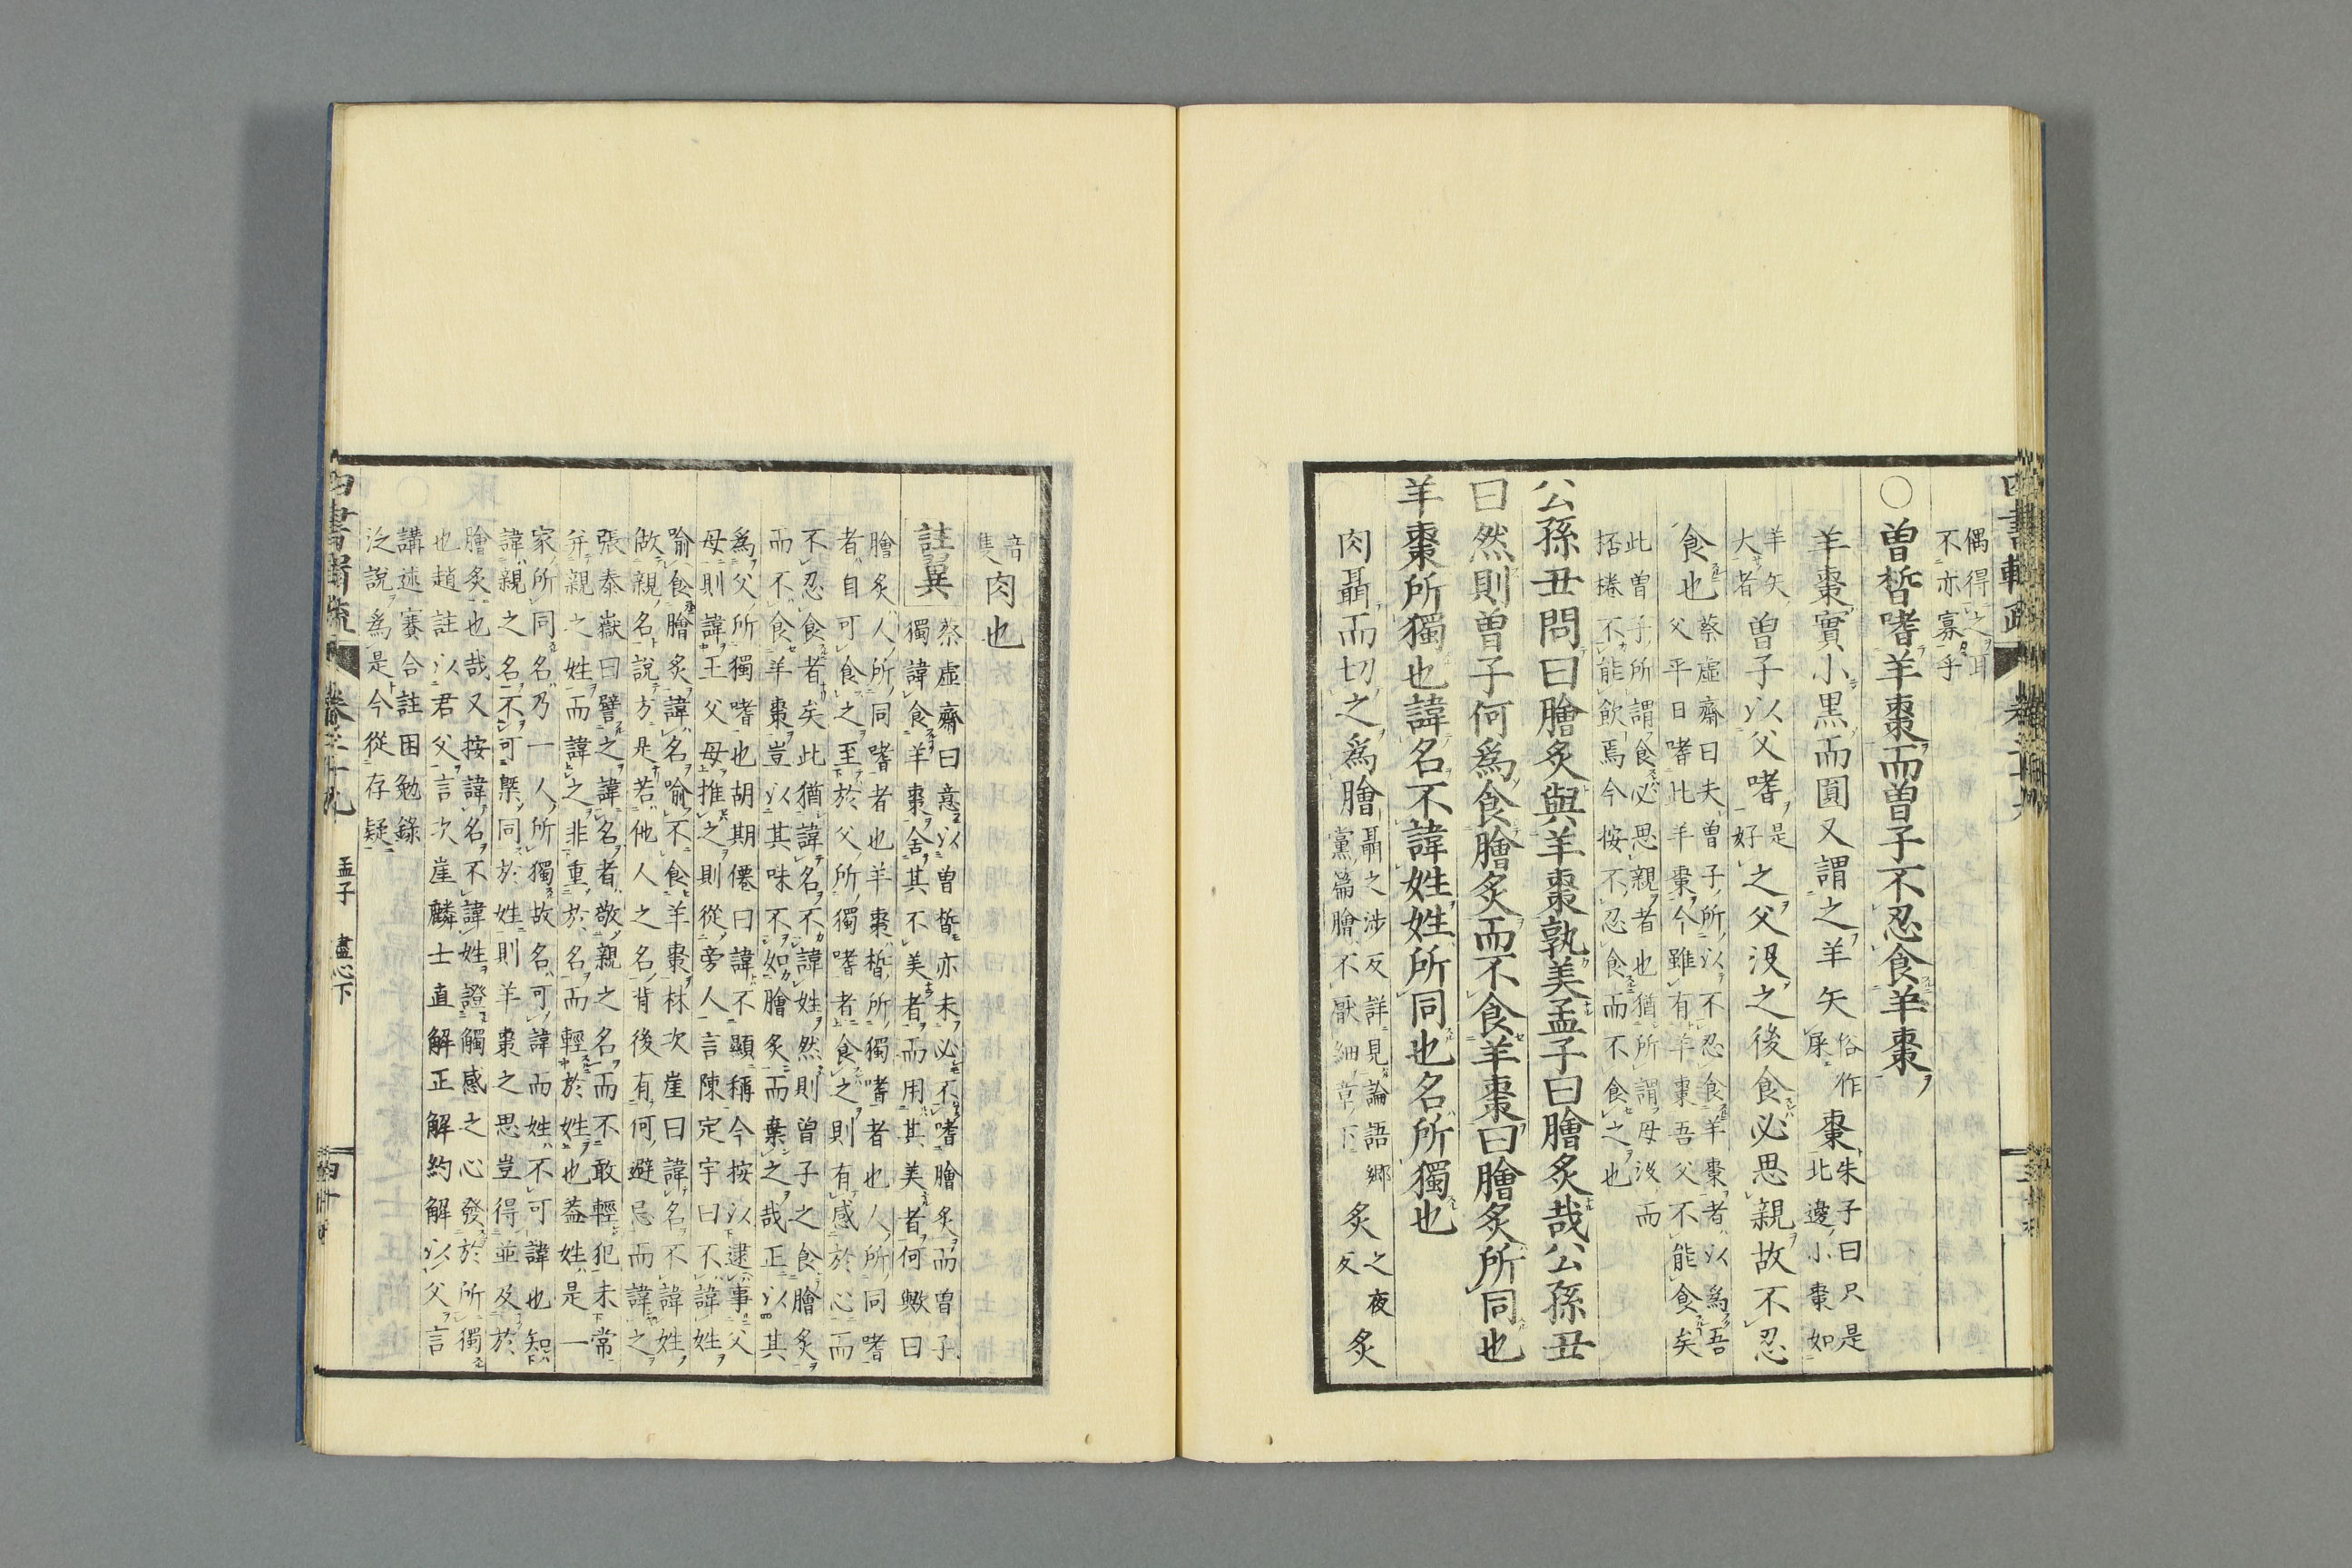 偶得之耳
不亦寡乎
○曽晳嗜羊棗而曽子不忍食羊棗
羊棗實小黒而圓又謂之羊矢
俗作
屎
棗
朱子曰只是
北邊小棗如
羊矢
大者
曽子以父嗜
是
好
之父没之後食必思親故不忍
食也
蔡虛齋曰夫曽子所以不忍食羊棗者以爲吾
父平日嗜此羊棗今雖有羊棗吾父不能食矣
此曽子所謂食必思親者也猶所謂母没而
括棬不能飲焉今按不忍食而不食之也
公孫丑問曰膾炙與羊棗孰美孟子曰膾炙哉公孫丑
曰然則曽子何爲食膾炙而不食羊棗曰膾炙所同也
羊棗所獨也諱名不諱姓姓所同也名所獨也
肉聶而切之爲膾
聶之渉反詳見論語郷
黨篇膾不厭細章下
炙
之夜
反
炙
音
隻
肉也
註翼
蔡虛齋曰意以曽晳亦未必不嗜膾炙而曽子
獨諱食羊棗舍其不美者而用其美者何歟曰
膾炙人所同嗜者也羊棗晳所獨嗜者也人所同嗜
者自可食之至於父所獨嗜者食之則有感於心而
不忍食者矣此猶諱名不諱姓然則曽子之食膾炙
而不食羊棗豈以其味不如膾炙而棄之哉正以其
爲父所獨嗜也胡期僊曰諱不顯稱今按以逮事父
母則諱王父母推之則從旁人言陳定宇曰不諱姓
喻食膾炙諱名喻不食羊棗林次崖曰諱名不諱姓
做親名說方是若他人之名背後有何避忌而諱之
張泰嶽曰譬之諱名者敬親之名而不敢輕犯未常
弁親之姓而諱之非重於名而輕於姓也蓋姓是一
家所同名乃一人所獨故名可諱而姓不可諱也知
諱親之名不可槩同於姓則羊棗之思豈得並及於
膾炙也哉又按諱名不諱姓證觸感之心發於所獨
也趙註以君父言次崖麟士直解正解解約解以父言
講述賽合註困勉錄
泛說爲是今從存疑
卷三十九
孟子
盡心下